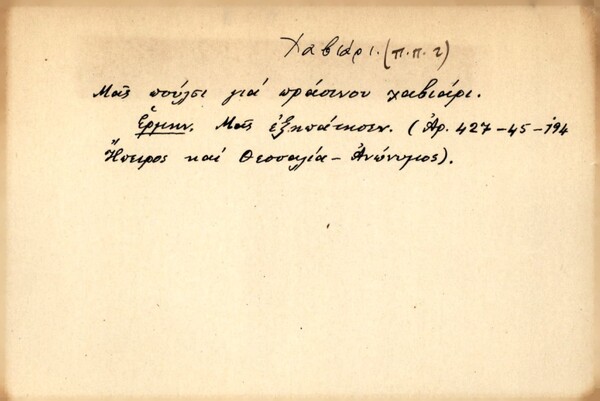 Χαβιάρι. (π.π.τ)
Μᾶς πούλσι γιά πράσινου χαβιάρι.
Ἑρμην. Μᾶς ἐξηπάτησεν. (Ἀρ. 427-45-194
Ἤπειρος καί Θεσσαλία - Ἀνώνυμος).